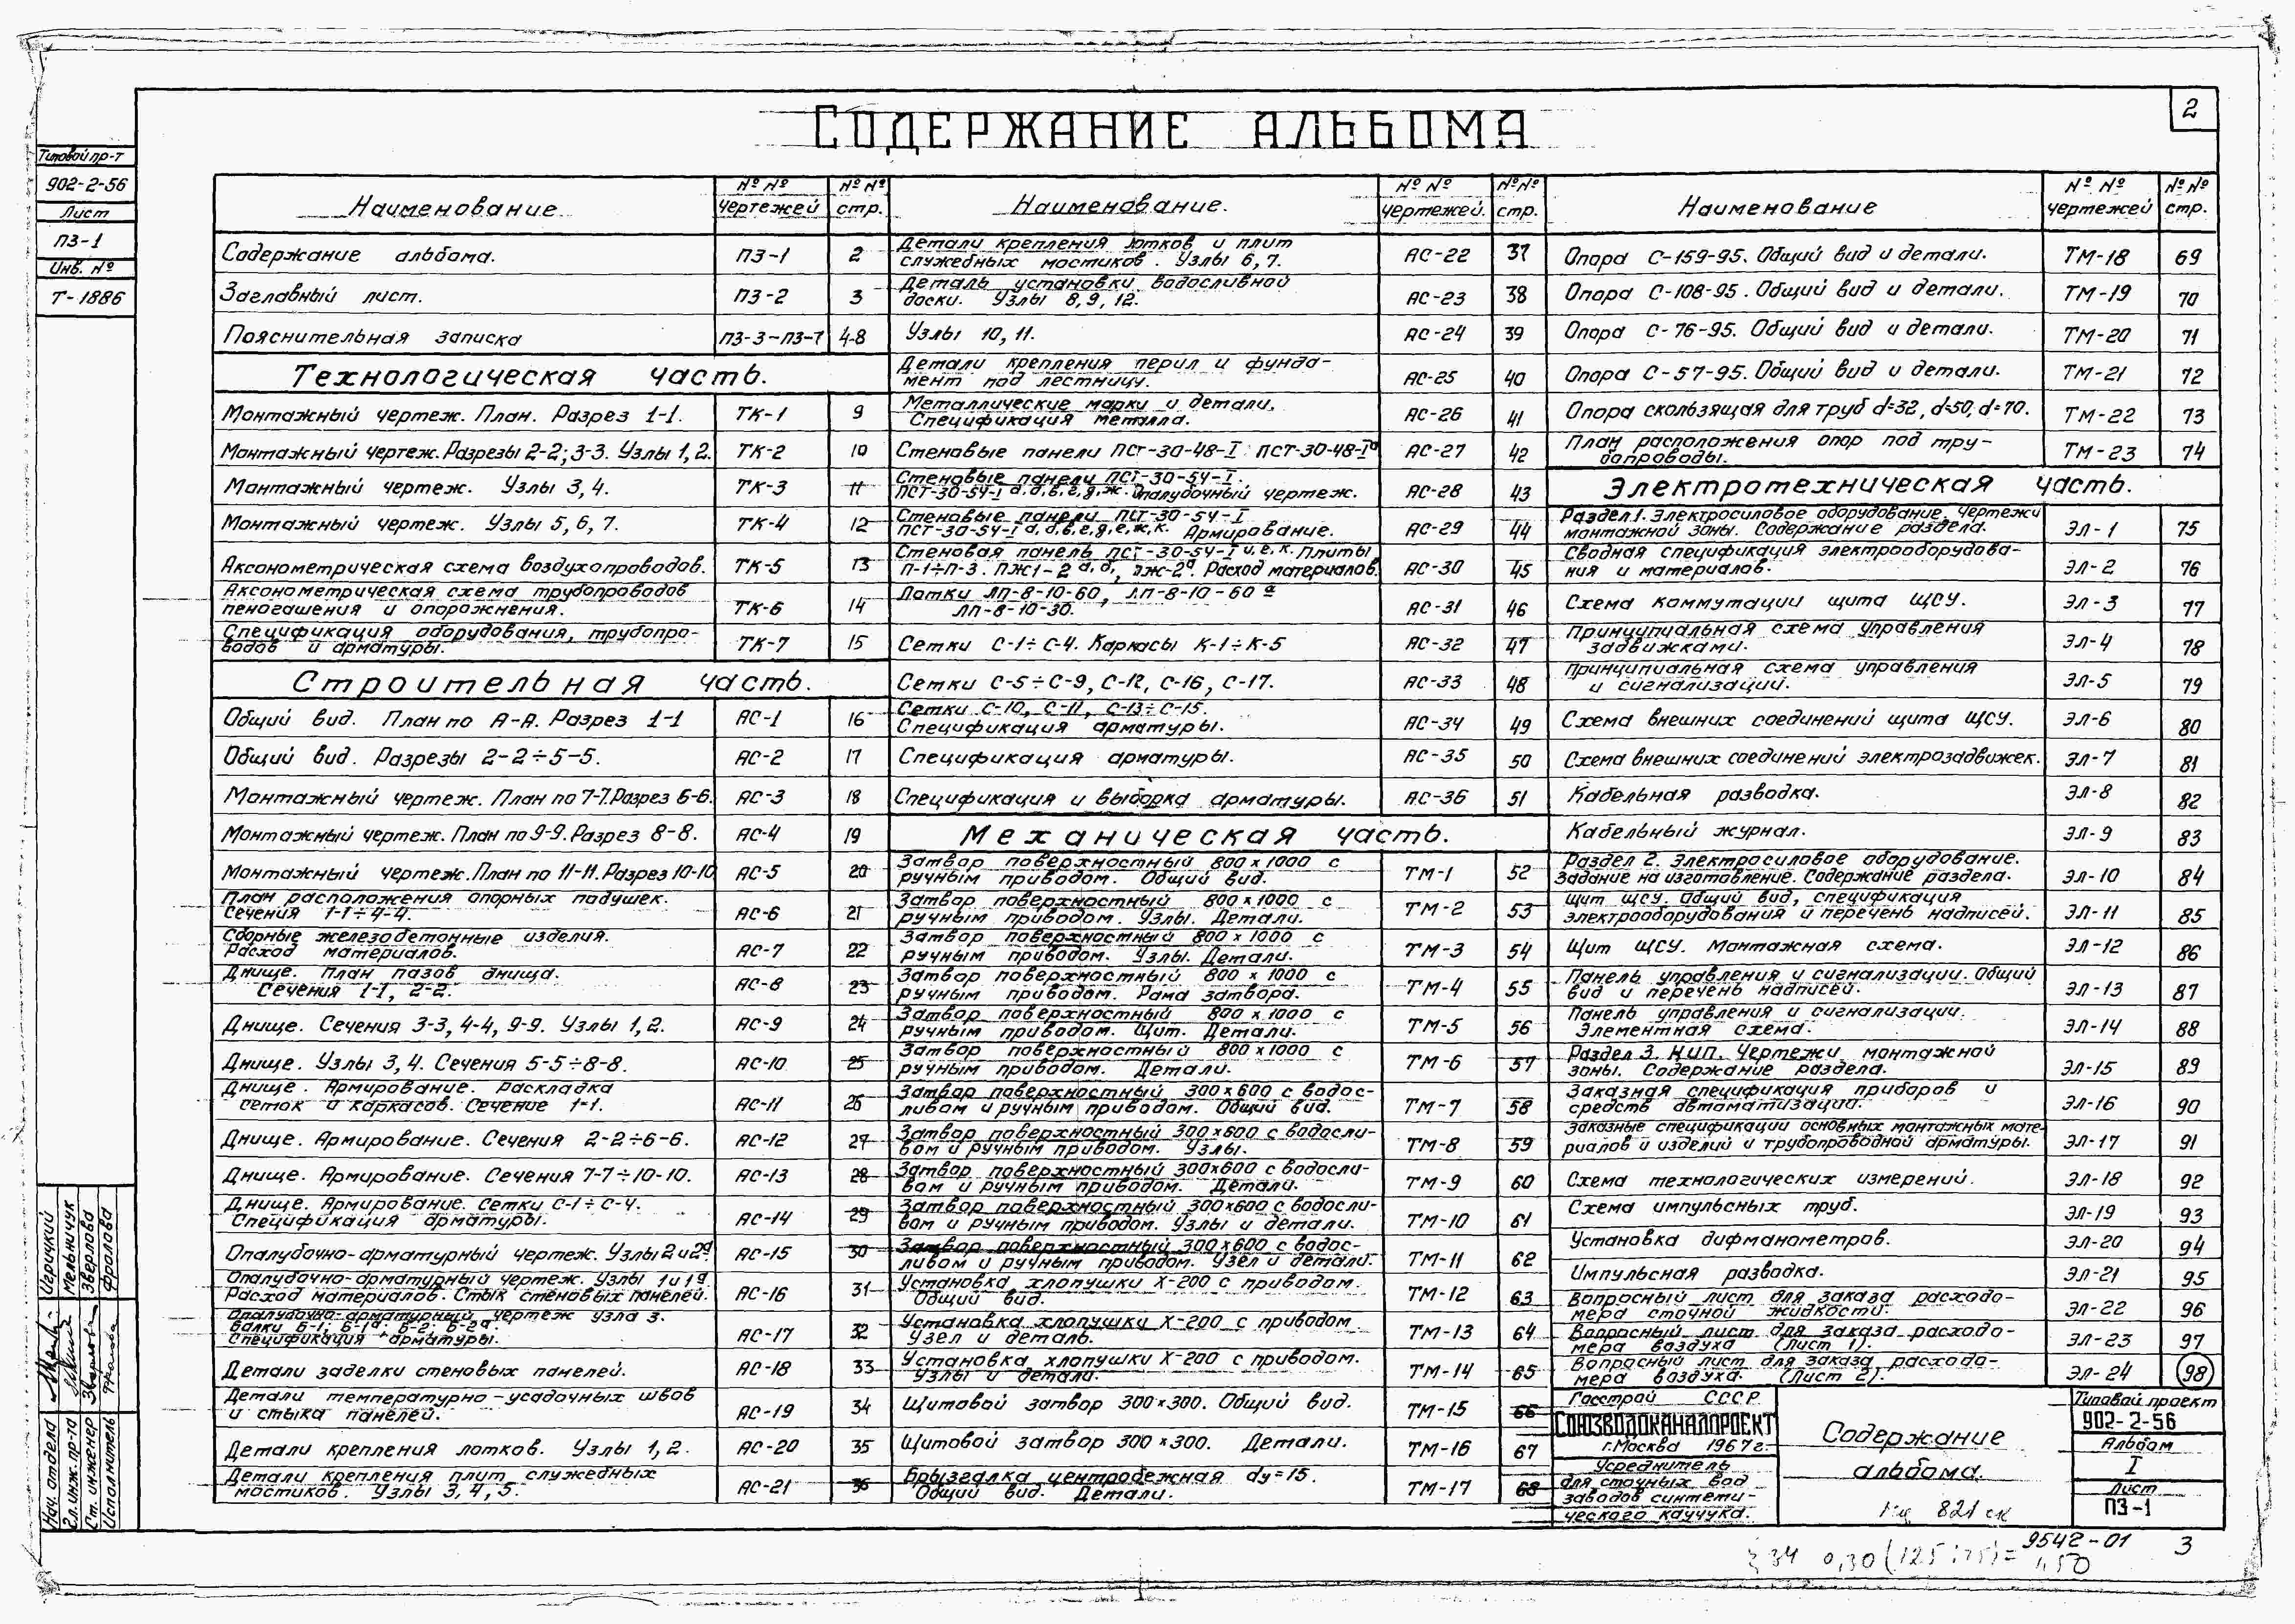 2
СОДЕРЖАНИЕ АЛЬБОМА
Типовой пр-т
902-2-56
Лист
ПЗ-1
Инв. №
Т-1886
Наименование №№ чертежей №№ стр.
Содержание альбома. ПЗ-1 2
Заглавный лист. ПЗ-2 3
Пояснительная записка ПЗ-3-ПЗ-7 4-8
Технологическая часть.
Монтажный чертеж. План. Разрез 1-1. ТК-1 9
Монтажный чертеж. Разрезы 2-2; 3-3. Узлы 1, 2. ТК-2 10
Монтажный чертеж. Узлы 3, 4. ТК-3 11
Монтажный чертеж. Узлы 5, 6, 7. ТК-4 12
Аксонометрическая схема воздухопроводов. ТК-5 13
Аксонометрическая схема трубопроводов
пеногашения и опорожнения. ТК-6 14
Спецификация оборудования, трубопро-
водов и арматуры. ТК-7 15
Строительная часть.
Общий вид. План по А-А. Разрез 1-1 АС-1 16
Общий вид. Разрезы 2-2÷5-5. АС-2 17
Монтажный чертеж. План по 7-7. Разрез 6-6. АС-3 18
Монтажный чертеж. План по 9-9. Разрез 8-8. АС-4 19
Монтажный чертеж. План по 11-11. Разрез 10-10 АС-5 20
План расположения опорных подушек.
Сечения 1-1÷4-4. АС-6 21
Сборные железобетонные изделия.
Расход материалов. АС-7 22
Днище. План пазов днища.
Сечения 1-1, 2-2. АС-8 23
Днище. Сечения 3-3, 4-4, 9-9. Узлы 1, 2. АС-9 24
Днище. Узлы 3, 4. Сечения 5-5÷8-8. АС-10 25
Днище. Армирование. Раскладка
сеток и каркасов. Сечение 1-1. АС-11 26
Днище. Армирование. Сечения 2-2÷6-6. АС-12 27
Днище. Армирование. Сечения 7-7÷10-10. АС-13 28
Днище. Армирование. Сетки С-1÷С-4.
Спецификация арматуры. АС-14 29
Опалубочно-арматурный чертеж. Узлы 2 и 2а АС-15 30
Опалубочно-арматурный чертеж. Узлы 1 и 1а
Расход материалов. Стык стеновых панелей. АС-16 31
Опалубочно-арматурный чертеж узла 3.
Балки Б-1; Б-1а; Б-2; Б-2а.
Спецификация арматуры. АС-17 32
Детали заделки стеновых панелей. АС-18 33
Детали температурно-усадочных швов
и стыка панелей. АС-19 34
Детали крепления лотков. Узлы 1, 2. АС-20 35
Детали крепления плит служебных
мостиков. Узлы 3, 4, 5. АС-21 36
Наименование. №№ чертежей. №№ стр.
Детали крепления лотков и плит
служебных мостиков. Узлы 6, 7. АС-22 37
Деталь установки водосливной
доски. Узлы 8, 9, 12. АС-23 38
Узлы 10, 11. АС-24 39
Детали крепления перил и фунда-
мент под лестницу. АС-25 40
Металлические марки и детали.
Спецификация металла. АС-26 41
Стеновые панели ПСТ-30-48-I; ПСТ-30-48-Iа АС-27 42
Стеновые панели ПСТ-30-54-I.
ПСТ-30-54-I а, б, в, г, д, ж. Опалубочный чертеж. АС-28 43
Стеновые панели ПСТ-30-54-I
ПСТ-30-54-I а, б, в, г, д, е, ж, к. Армирование. АС-29 44
Стеновая панель ПСТ-30-54-I и, е, к. Плиты
П-1÷П-3. ПЖ1-2 Расход материалов. АС-30 45
Лотки ЛП-8-10-60, ЛП-8-10-60 а
ЛП-8-10-30. АС-31 46
Сетки С-1÷С-4. Каркасы К-1÷К-5 АС-32 47
Сетки С-5÷С-9, С-12, С-16, С-17. АС-33 48
Сетки С-10, С-11, С-13÷С-15.
Спецификация арматуры. АС-34 49
Спецификация арматуры. АС-35 50
Спецификация и выборка арматуры. АС-36 51
Механическая часть.
Затвор поверхностный 800×1000 с
ручным приводом. Общий вид. ТМ-1 52
Затвор поверхностный 800×1000 с
ручным приводом. Узлы. Детали. ТМ-2 53
Затвор поверхностный 800×1000 с
ручным приводом. Узлы. Детали. ТМ-3 54
Затвор поверхностный 800×1000 с
ручным приводом. Рама затвора. ТМ-4 55
Затвор поверхностный 800×1000 с
ручным приводом. Щит. Детали. ТМ-5 56
Затвор поверхностный 800×1000 с
ручным приводом. Детали. ТМ-6 57
Затвор поверхностный 300×600 с водос-
ливом и ручным приводом. Общий вид. ТМ-7 58
Затвор поверхностный 300×600 с водосли-
вом и ручным приводом. Узлы. ТМ-8 59
Затвор поверхностный 300×600 с водосли-
вом и ручным приводом. Детали. ТМ-9 60
Затвор поверхностный 300×600 с водосли-
вом и ручным приводом. Узлы и детали. ТМ-10 61
Затвор поверхностный 300×600 с водос-
ливом и ручным приводом. Узел и детали. ТМ-11 62
Установка хлопушки Х-200 с приводом.
Общий вид. ТМ-12 63
Установка хлопушки Х-200 с приводом
Узел и деталь. ТМ-13 64
Установка хлопушки Х-200 с приводом.
Узлы и детали. ТМ-14 65
Щитовой затвор 300×300. Общий вид. ТМ-15 66
Щитовой затвор 300×300. Детали. ТМ-16 67
Брызгалка центробежная dу=15.
Общий вид. Детали. ТМ-17 68
Наименование №№ чертежей №№ стр.
Опора С-159-95. Общий вид и детали. ТМ-18 69
Опора С-108-95. Общий вид и детали. ТМ-19 70
Опора С-76-95. Общий вид и детали. ТМ-20 71
Опора С-57-95. Общий вид и детали. ТМ-21 72
Опора скользящая для труб d=32, d=50, d=70. ТМ-22 73
План расположения опор под тру-
бопроводы. ТМ-23 74
Электротехническая часть.
Раздел 1. Электросиловое оборудование. Чертежи
монтажной зоны. Содержание раздела. ЭЛ-1 75
Сводная спецификация электрооборудова-
ния и материалов. ЭЛ-2 76
Схема коммутации щита ЩСУ. ЭЛ-3 77
Принципиальная схема управления
задвижками. ЭЛ-4 78
Принципиальная схема управления
и сигнализации. ЭЛ-5 79
Схема внешних соединений щита ЩСУ. ЭЛ-6 80
Схема внешних соединений электрозадвижек. ЭЛ-7 81
Кабельная разводка. ЭЛ-8 82
Кабельный журнал. ЭЛ-9 83
Раздел 2. Электросиловое оборудование.
Задание на изготовление. Содержание раздела. ЭЛ-10 84
Щит ЩСУ. Общий вид, спецификация
электрооборудования и перечень надписей. ЭЛ-11 85
Щит ЩСУ. Монтажная схема. ЭЛ-12 86
Панель управления и сигнализации. Общий
вид и перечень надписей. ЭЛ-13 87
Панель управления и сигнализации.
Элементная схема. ЭЛ-14 88
Раздел 3. КИП. Чертежи монтажной
зоны. Содержание раздела. ЭЛ-15 89
Заказная спецификация приборов и
средств автоматизации. ЭЛ-16 90
Заказные спецификации основных монтажных мате-
риалов и изделий и трубопроводной арматуры. ЭЛ-17 91
Схема технологических измерений. ЭЛ-18 92
Схема импульсных труб. ЭЛ-19 93
Установка дифманометров. ЭЛ-20 94
Импульсная разводка. ЭЛ-21 95
Вопросный лист для заказа расходо-
мера сточной жидкости. ЭЛ-22 96
Вопросный лист для заказа расходо-
мера воздуха (Лист 1). ЭЛ-23 97
Вопросный лист для заказа расходо-
мера воздуха. (Лист 2). ЭЛ-24 98
Госстрой СССР
СОЮЗВОДОКАНАЛПРОЕКТ
г. Москва 1967 г.
Усреднитель
для сточных вод
заводов синтети-
ческого каучука.
Содержание
альбома.
821
Типовой проект
902-2-56
Альбом
I
Лист
ПЗ-1
9542-01 3
34 0,30 (125
450
Нач. отдела Игрицкий
Гл. инж. пр-та Мельничук
Ст. инженер Зверлова
Исполнитель Фролова